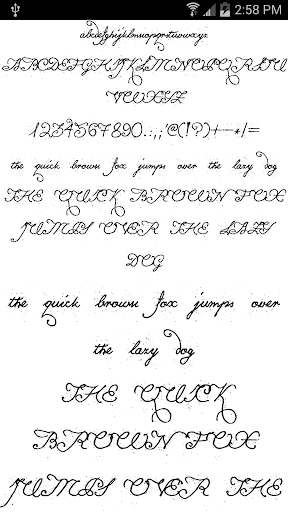 2:58 PM
abcdefghijklmnopqrstuvwxyz
ABCDEFGHIJKLMNOPQRSTU
VWXYZ
1234567890.:,;'@(!?)+-*/=
the quick brown fox jumps over the lazy dog
THE QUICK BROWN FOX
JUMPS OVER THE LAZY
DOG
the quick brown fox jumps over
the lazy dog
THE QUICK
BROWN FOX
JUMPS OVER THE